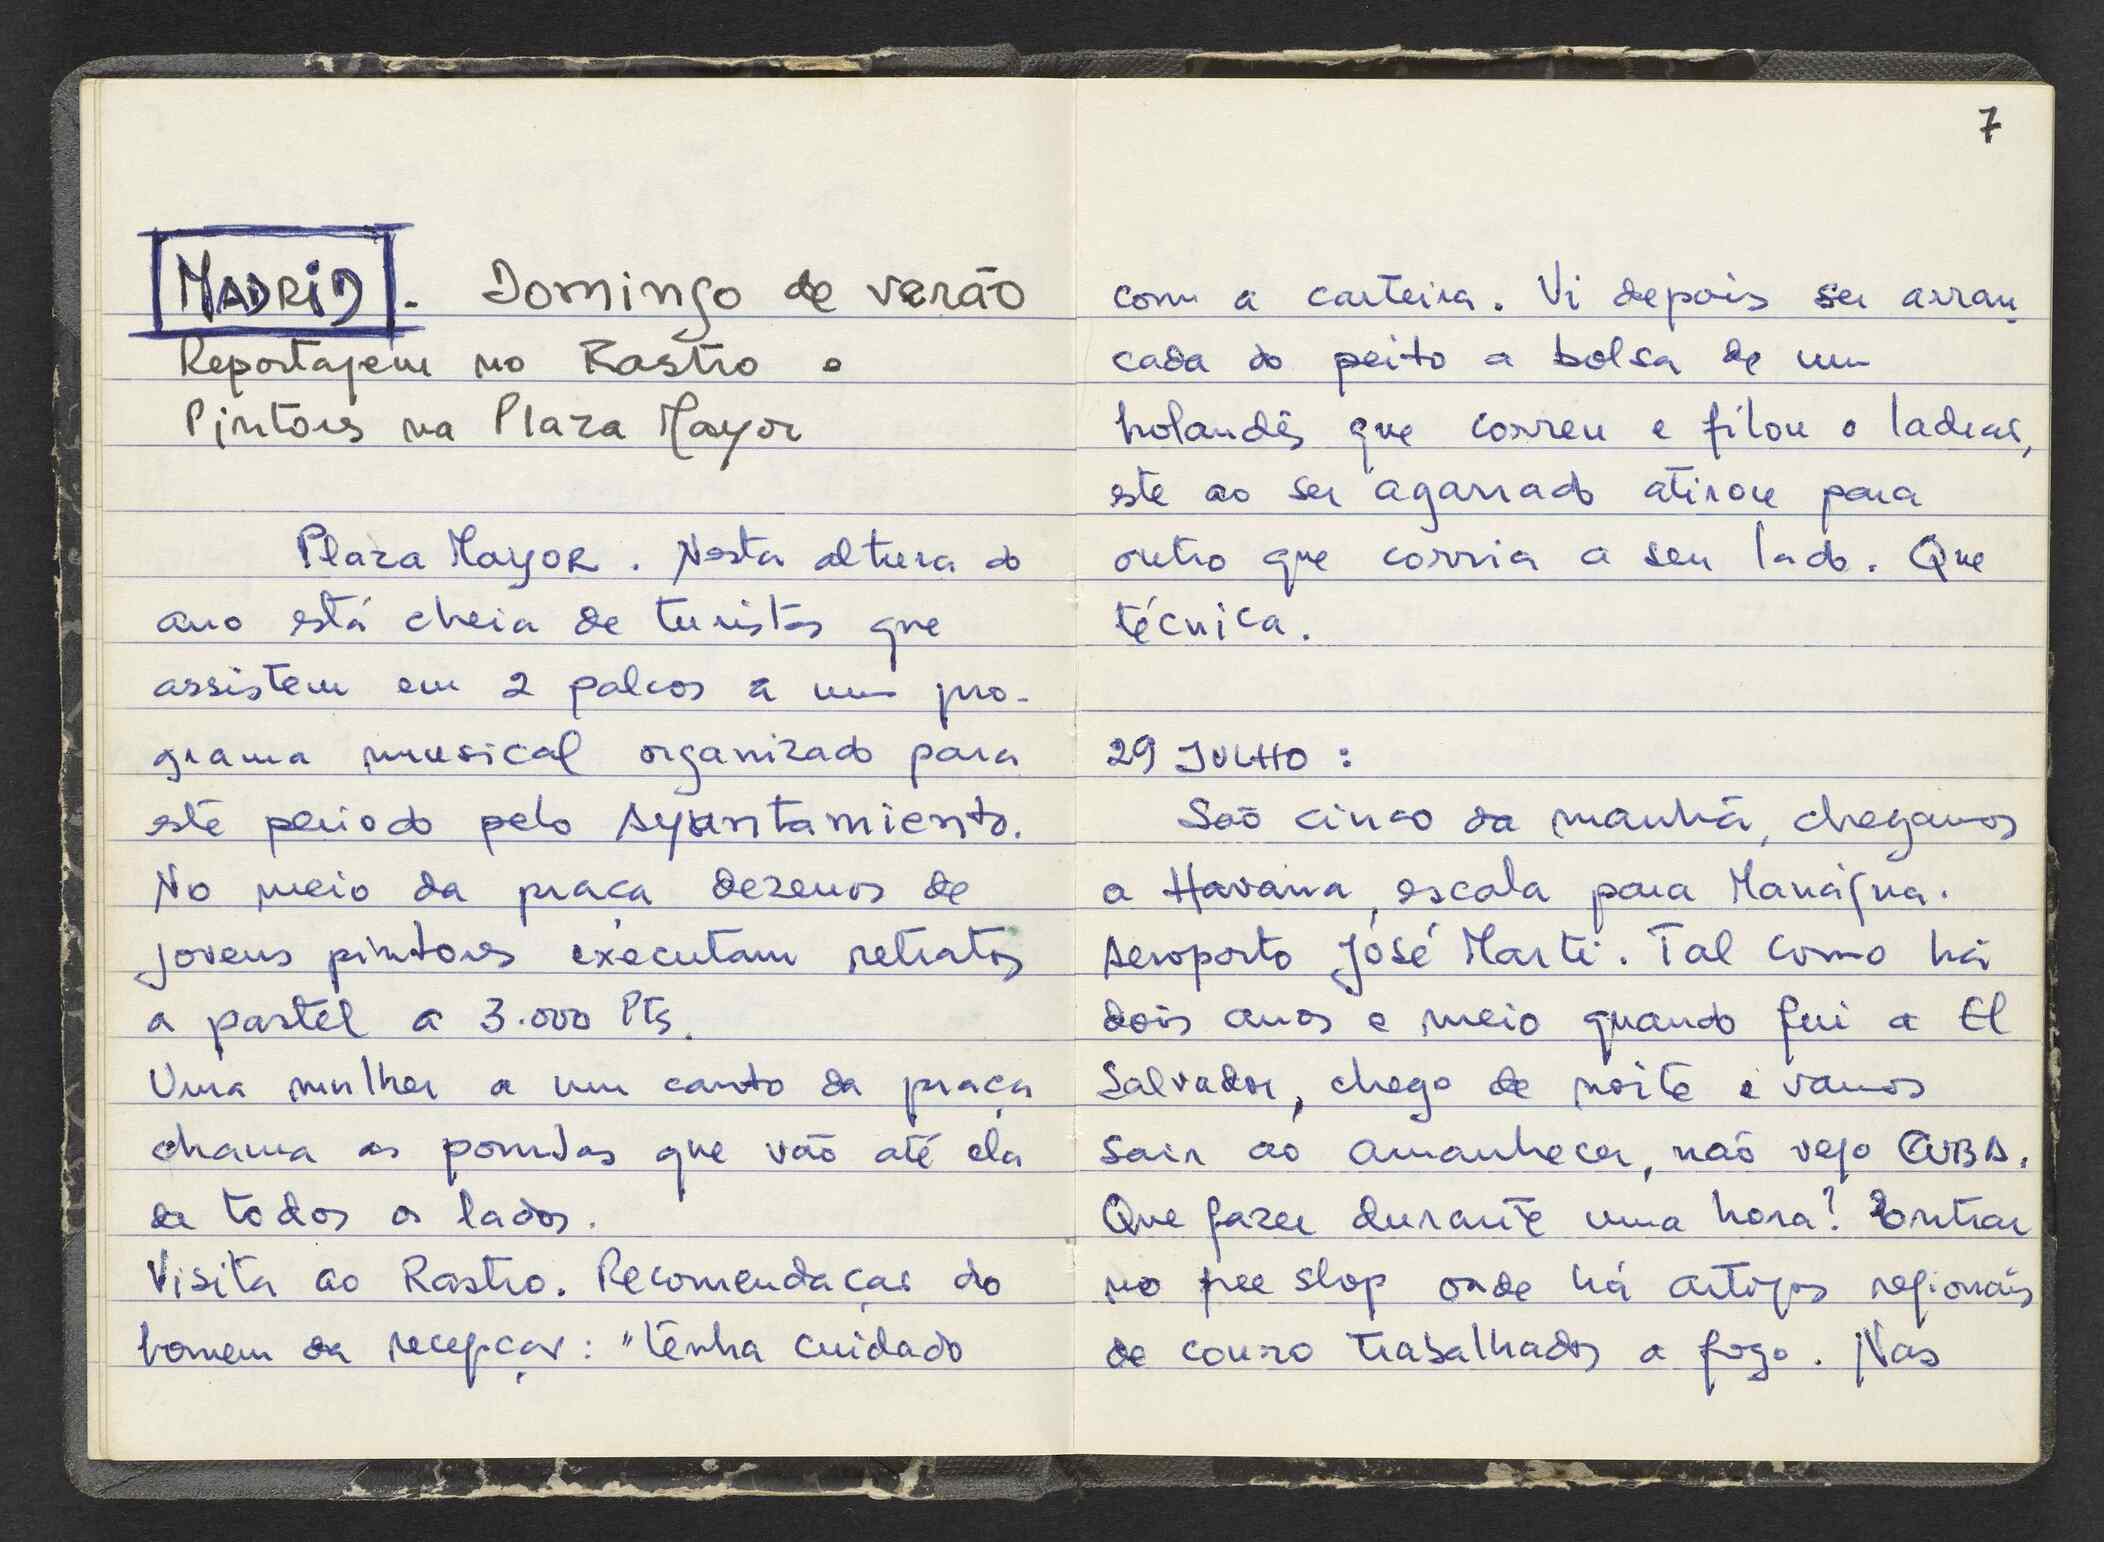 MADRID. Domingo de verão
Reportajem no Rastro e
Pintores na Plaza Mayor
Plaza Mayor. Nesta altura do
ano está cheia de turistas que
assistem em 2 palcos a um pro-
grama musical organizado para
este periodo pelo Ayuntamiento.
No meio da praça dezenas de
jovens pintores executam retratos
a pastel a 3.000 Pts.
Uma mulher a um canto da praça
chama as pombas que vão até ela
de todos os lados.
Visita ao Rastro. Recomendação do
homem da recepção: "tenha cuidado
7
com a carteira. Vi depois ser arran
cada do peito a bolsa de um
holandês que correu e filou o ladrão,
este ao ser agarrado atirou para
outro que corria a seu lado. Que
técnica.
29 JULHO:
São cinco da manhã, chegamos
a Havana, escala para Manágua.
Aeroporto José Marti. Tal como há
dois anos e meio quando fui a El
Salvador, chego de noite e vamos
sair ao amanhecer, não vejo CUBA.
Que fazer durante uma hora? Entrar
no free shop onde há artigos regionais
de couro trabalhados a fogo. Nas